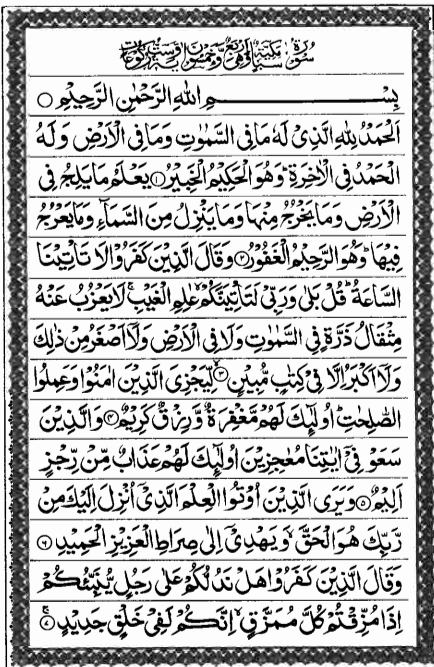 سُوْرَةُ سَبَاٍ مَّكِّيَّةٌ وَّهِيَ اَرْبَعٌ وَّخَمْسُوْنَ اٰيَةً وَّسِتُّ رُكُوْعَاتٍ
بِسْمِ اللهِ الرَّحْمٰنِ الرَّحِيْمِ ○
اَلْحَمْدُ لِلّٰهِ الَّذِىْ لَهٗ مَا فِى السَّمٰوٰتِ وَمَا فِى الْاَرْضِ وَلَهُ
الْحَمْدُ فِى الْاٰخِرَةِ ؕ وَهُوَ الْحَكِيْمُ الْخَبِيْرُ ۱ يَعْلَمُ مَا يَلِجُ فِى
الْاَرْضِ وَمَا يَخْرُجُ مِنْهَا وَمَا يَنْزِلُ مِنَ السَّمَآءِ وَمَا يَعْرُجُ
فِيْهَا ؕ وَهُوَ الرَّحِيْمُ الْغَفُوْرُ ۲ وَقَالَ الَّذِيْنَ كَفَرُوْا لَا تَاْتِيْنَا
السَّاعَةُ ؕ قُلْ بَلٰى وَرَبِّىْ لَتَاْتِيَنَّكُمْ ۙ عٰلِمِ الْغَيْبِ ۚ لَا يَعْزُبُ عَنْهُ
مِثْقَالُ ذَرَّةٍ فِى السَّمٰوٰتِ وَلَا فِى الْاَرْضِ وَلَاۤ اَصْغَرُ مِنْ ذٰلِكَ
وَلَاۤ اَكْبَرُ اِلَّا فِىْ كِتٰبٍ مُّبِيْنٍ ۳ لِّيَجْزِىَ الَّذِيْنَ اٰمَنُوْا وَعَمِلُوا
الصّٰلِحٰتِ ؕ اُولٰٓئِكَ لَهُمْ مَّغْفِرَةٌ وَّرِزْقٌ كَرِيْمٌ ۴ وَالَّذِيْنَ
سَعَوْ فِىْۤ اٰيٰتِنَا مُعٰجِزِيْنَ اُولٰٓئِكَ لَهُمْ عَذَابٌ مِّنْ رِّجْزٍ
اَلِيْمٌ ۵ وَيَرَى الَّذِيْنَ اُوْتُوا الْعِلْمَ الَّذِىْۤ اُنْزِلَ اِلَيْكَ مِنْ
رَّبِّكَ هُوَ الْحَقَّ ۙ وَيَهْدِىْۤ اِلٰى صِرَاطِ الْعَزِيْزِ الْحَمِيْدِ ۶
وَقَالَ الَّذِيْنَ كَفَرُوْا هَلْ نَدُلُّكُمْ عَلٰى رَجُلٍ يُّنَبِّئُكُمْ
اِذَا مُزِّقْتُمْ كُلَّ مُمَزَّقٍ ۙ اِنَّكُمْ لَفِىْ خَلْقٍ جَدِيْدٍ ۷